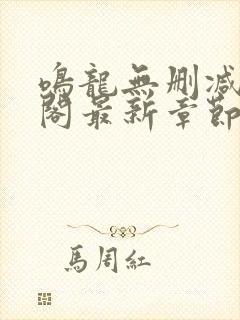 鳴龍無刪減
閣最新章節
馬周紅